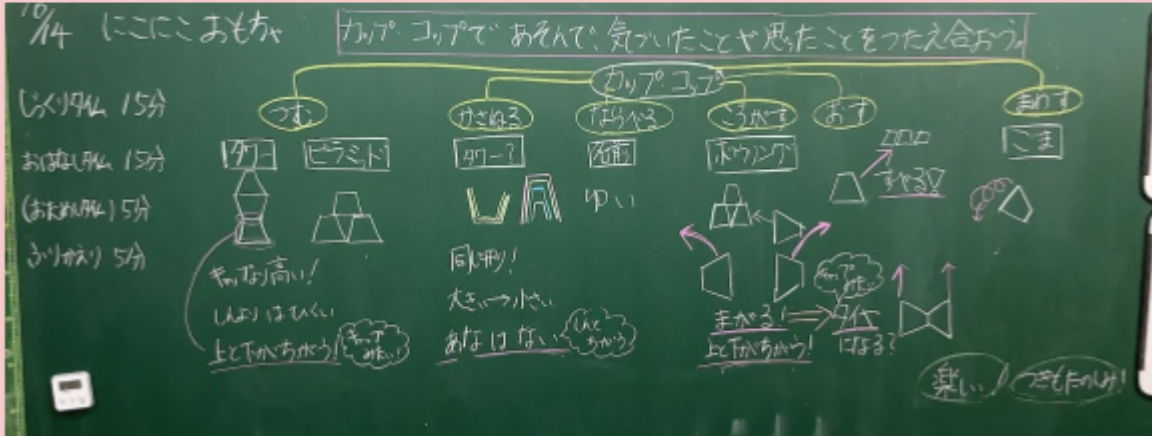 10/14 にこにこおもちゃ
カップ・コップであそんで、気づいたことや思ったことをつたえ合おう。
カップ・コップ
じっくりタイム 15分
おはなしタイム 15分
(おためしタイム) 5分
ふりかえり 5分
つむ
タワー
ピラミッド
より高い!
しんよりはひくい
上と下がちがう!
みたい!
かさねる
タワー?
同じ形!
大きい→小さい
あなはない
しんと
ちがう
ならべる
ころがす
ボウリング
まがる!
上と下がちがう!
みたい
タイヤ
になる?
おす
すべる
まわす
こま
楽しい!
つぎもたのしみ!